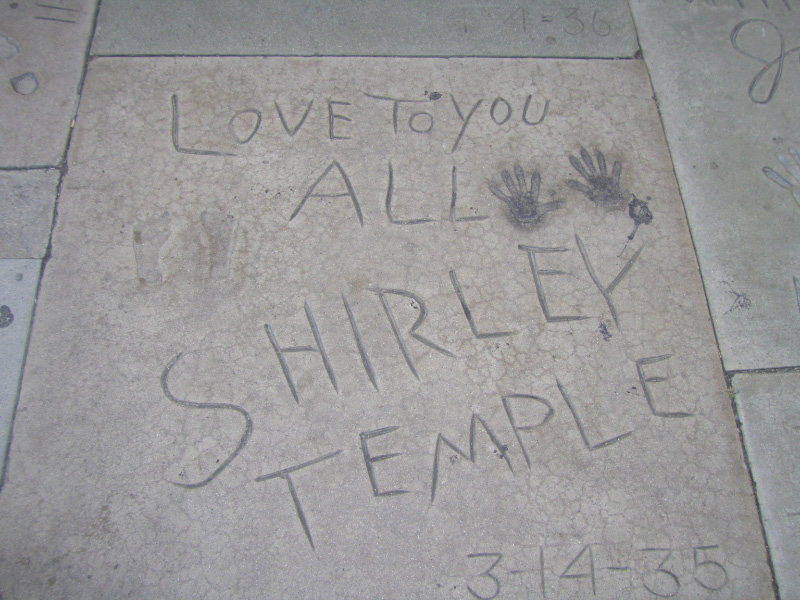 4-36
LOVE To YOU
ALL
SHIRLEY
TEMPLE
3-14-35